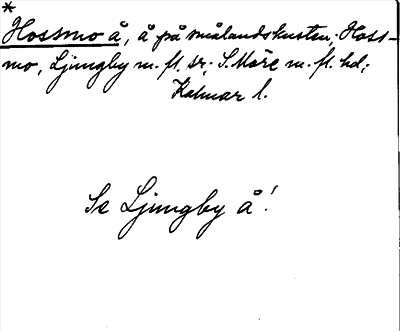 *
Hossmo å, å på smålandskusten; Hoss-
mo, Ljungby m. fl. sr; S. Möre m. fl. hd;
Kalmar l.
Se Ljungby å!